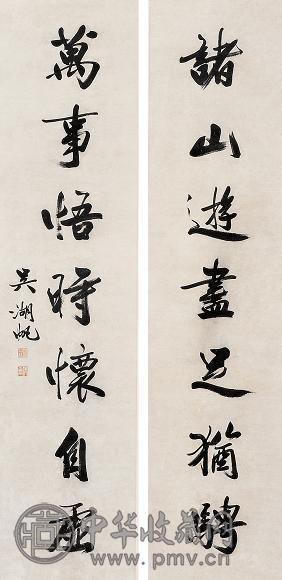 諸山遊盡足猶騁
萬事悟時懷自虛
吳湖帆
中华收藏网
www.pmv.cn